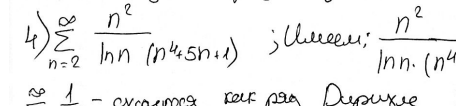 4) ∑_{n=2}^{∞} n² / (ln n (n⁴+5n+1)) ; Имеем; n² / (ln n · (n⁴
∞ 1 – сходится как ряд Дирихле